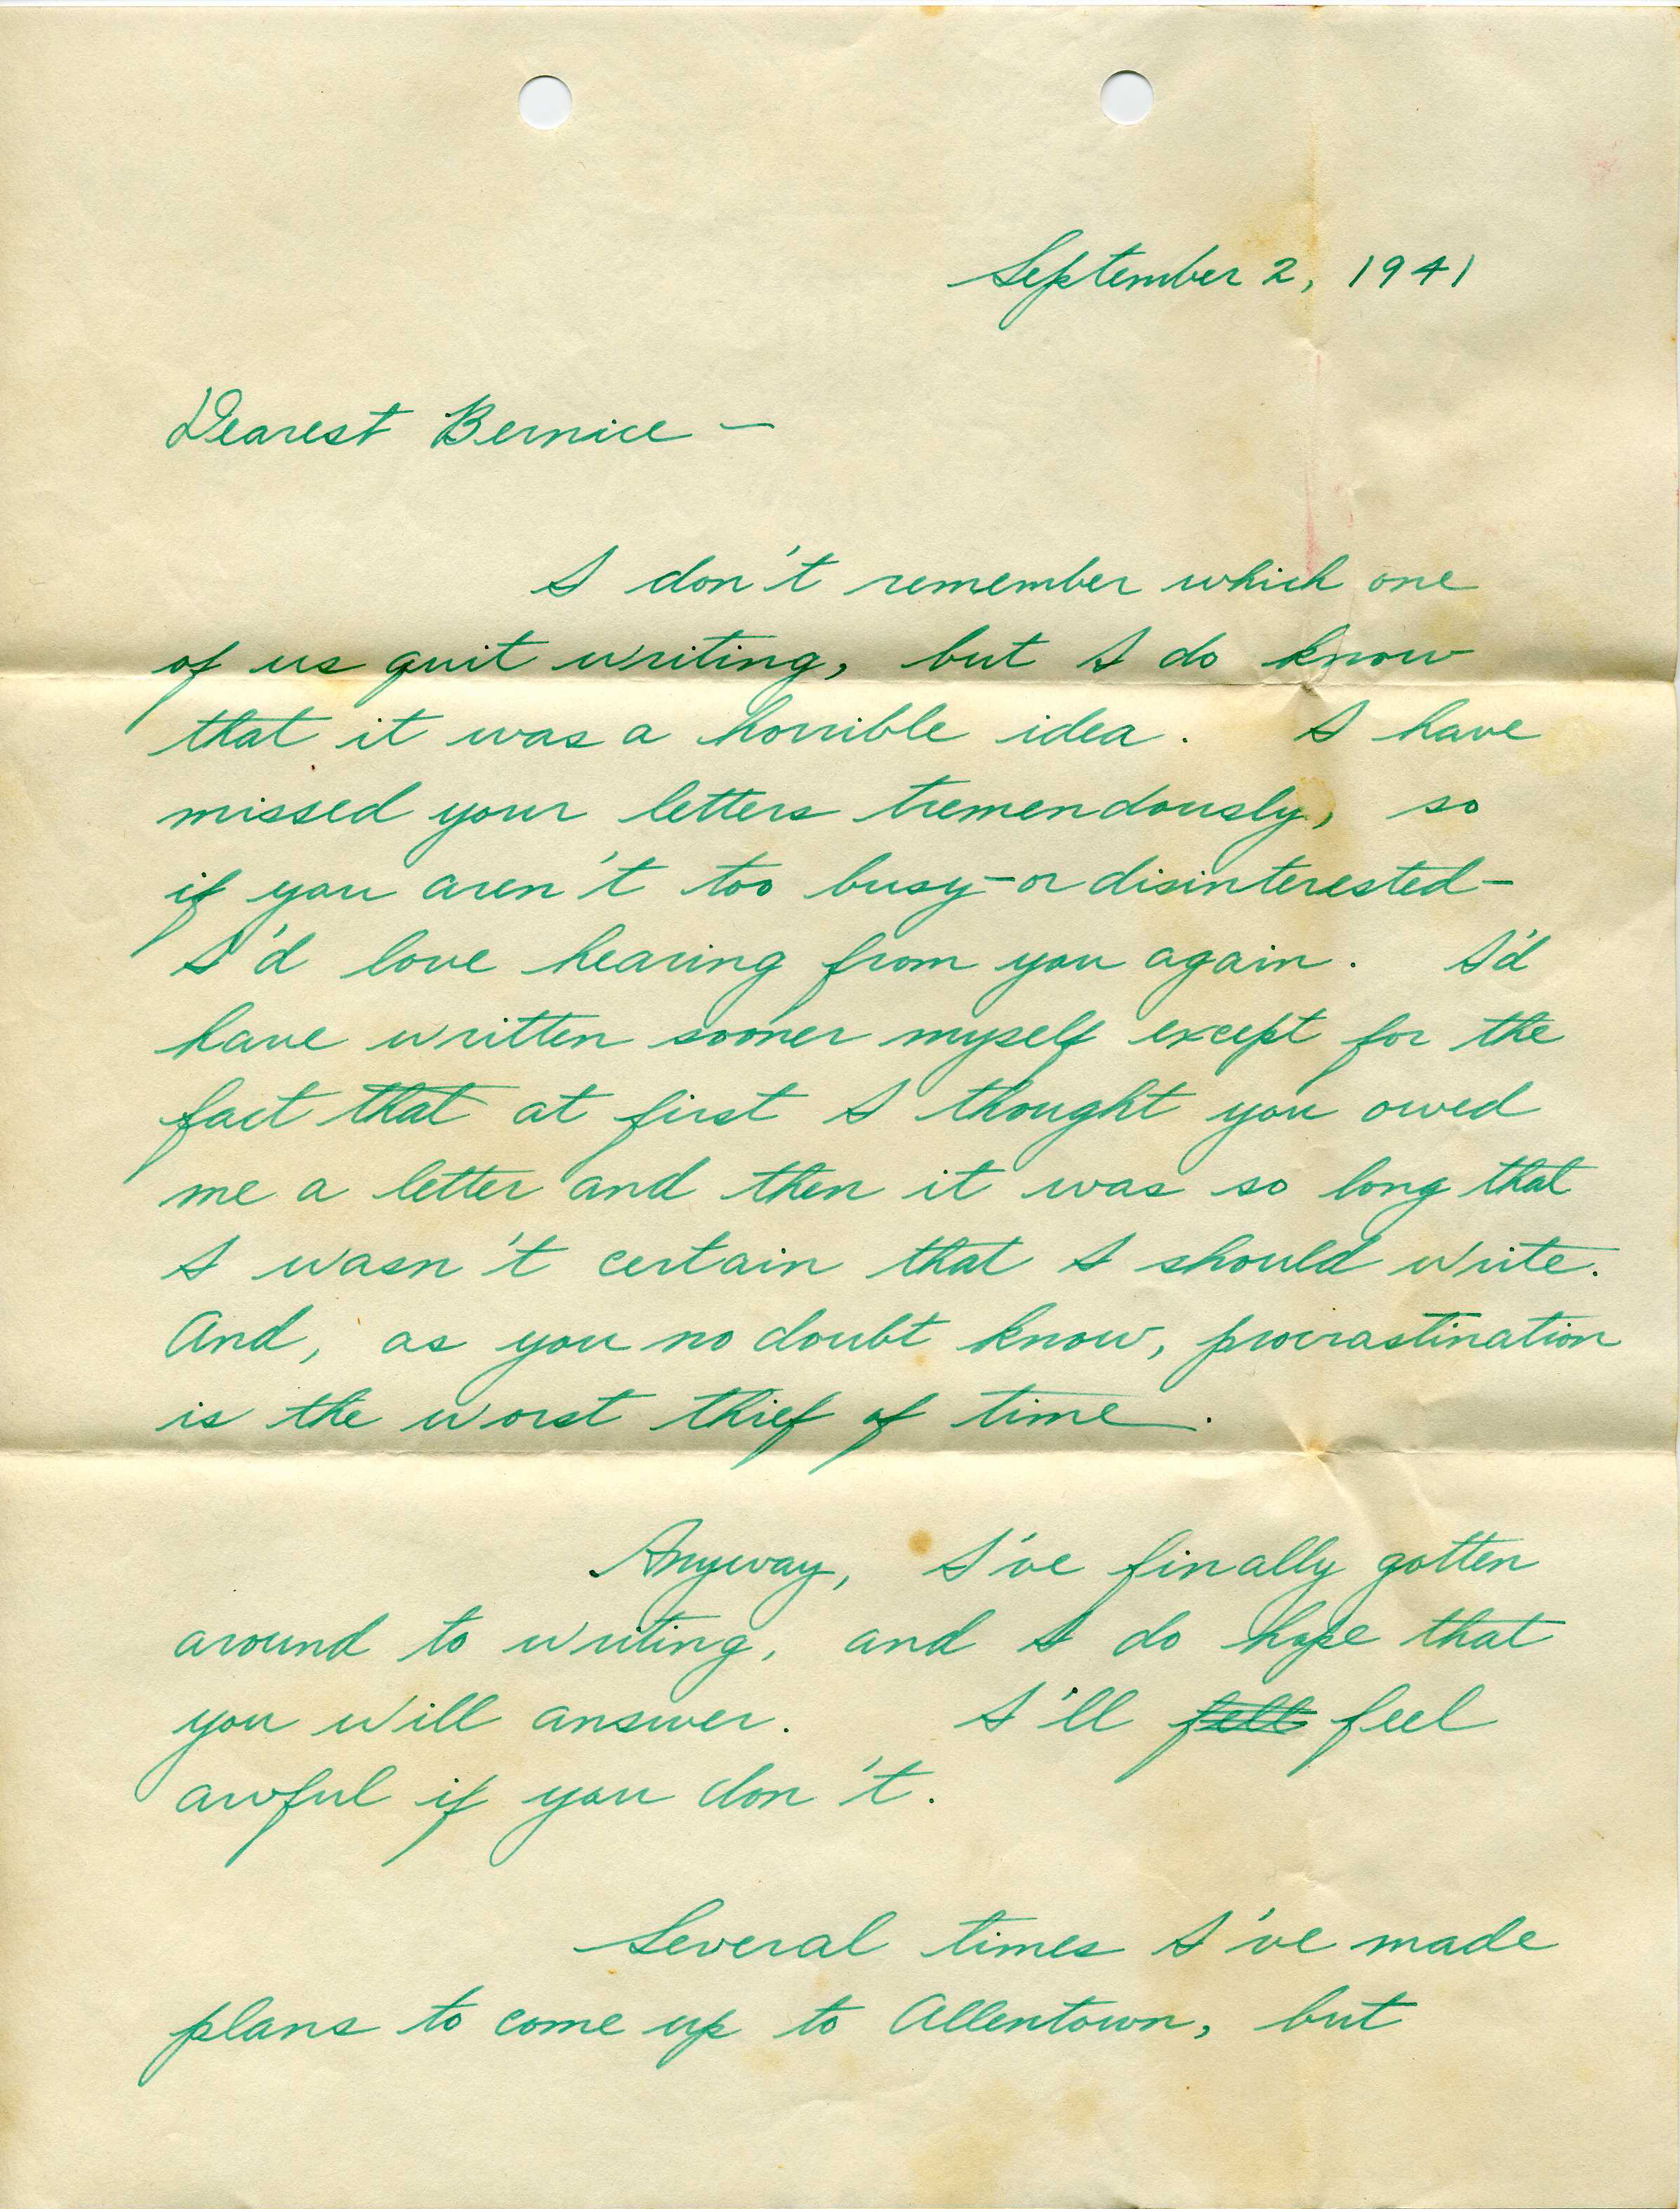 September 2, 1941
Dearest Bernice –
I don't remember which one
of us quit writing, but I do know
that it was a horrible idea. I have
missed your letters tremendously, so
if you aren't too busy – or disinterested –
I'd love hearing from you again. I'd
have written sooner myself except for the
fact that at first I thought you owed
me a letter and then it was so long that
I wasn't certain that I should write.
And, as you no doubt know, procrastination
is the worst thief of time.
Anyway, I've finally gotten
around to writing, and I do hope that
you will answer. I'll felt feel
awful if you don't.
Several times I've made
plans to come up to Allentown, but